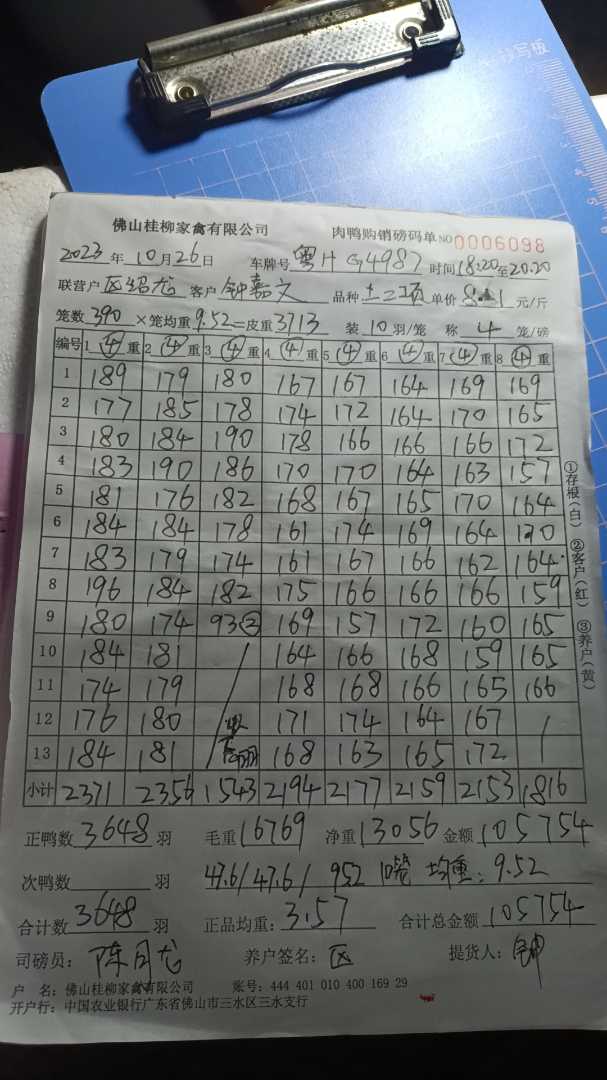 写板
佛山桂柳家禽有限公司 肉鸭购销磅码单 NO 0006098
2023 年 10 月 26 日 车牌号 粤H G4987 时间 18:20 至 20.20
联营户 区绍龙 客户 钟嘉文 品种 土二项 单价 8.1 元/斤
笼数 390 ×笼均重 9.52 =皮重 3713 装 10 羽/笼 称 4 笼/磅
编号 1 ④ 重 2 ④ 重 3 ④ 重 4 ④ 重 5 ④ 重 6 ④ 重 7 ④ 重 8 ④ 重
1 189 179 180 167 167 164 169 169
2 177 185 178 174 172 164 170 165
3 180 184 190 178 166 166 166 172
4 183 190 186 170 170 164 163 157
5 181 176 182 168 167 165 170 164
6 184 184 178 161 174 169 164 170
7 183 179 174 161 167 166 162 164
8 196 184 182 175 166 166 166 159
9 180 174 93② 169 157 172 160 165
10 184 181 164 166 168 159 165
11 174 179 168 168 166 165 166
12 176 180 171 174 164 167
13 184 181 168 163 165 172
小计 2371 2356 1543 2194 2177 2159 2153 1816
①存根(白) ②客户(红) ③养户(黄)
正鸭数 3648 羽 毛重 16769 净重 13056 金额 105754
次鸭数 羽 47.6/47.6/ 952 10笼 均重: 9.52
合计数 3648 羽 正品均重: 3.57 合计总金额 105754
司磅员: 陈月龙 养户签名: 区 提货人: 钟
户 名: 佛山桂柳家禽有限公司 账号: 444 401 010 400 169 29
开户行: 中国农业银行广东省佛山市三水区三水支行